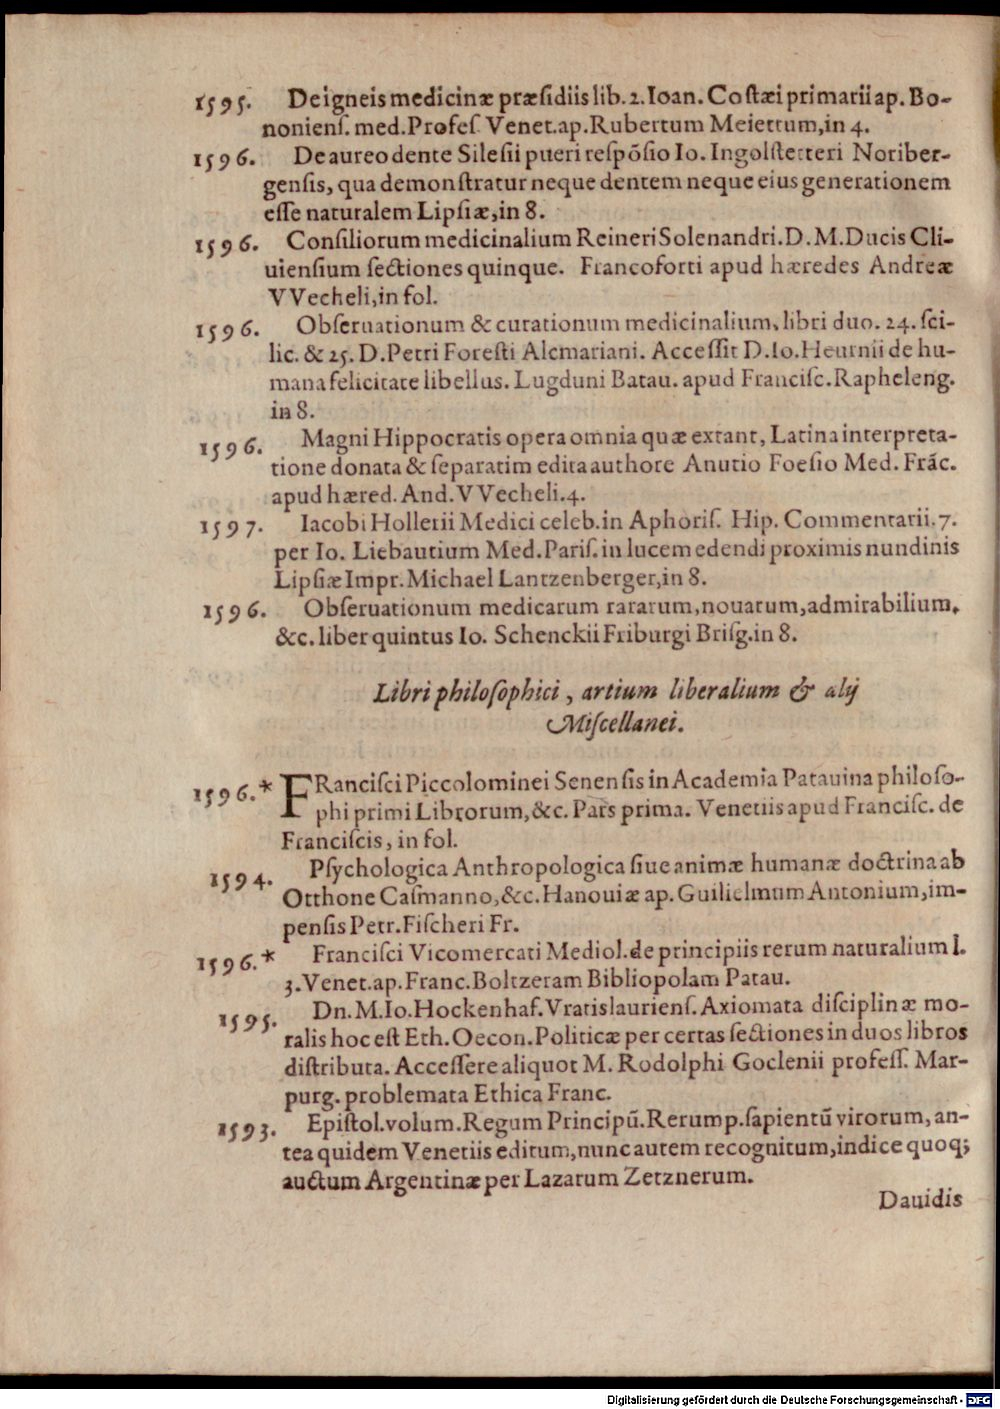 1595. De igneis medicinæ præsidiis lib. 2. Ioan. Costæi primarii ap. Bo-
noniens. med. Profes. Venet. ap. Rubertum Meiettum, in 4.
1596. De aureo dente Silesii pueri respõsio Io. Ingolstetteri Noriber-
gensis, qua demonstratur neque dentem neque eius generationem
esse naturalem Lipsiæ, in 8.
1596. Consiliorum medicinalium Reineri Solenandri. D. M. Ducis Cli-
uiensium sectiones quinque. Francoforti apud hæredes Andreæ
VVecheli, in fol.
1596. Obseruationum & curationum medicinalium, libri duo. 24. sci-
lic. & 25. D. Petri Foresti Alcmariani. Accessit D. Io. Heurnii de hu-
mana felicitate libellus. Lugduni Batau. apud Francisc. Rapheleng.
in 8.
1596. Magni Hippocratis opera omnia quæ extant, Latina interpreta-
tione donata & separatim edita authore Anutio Foesio Med. Frãc.
apud hæred. And. VVecheli. 4.
1597. Iacobi Hollerii Medici celeb. in Aphoris. Hip. Commentarii. 7.
per Io. Liebautium Med. Paris. in lucem edendi proximis nundinis
Lipsiæ Impr. Michael Lantzenberger, in 8.
1596. Obseruationum medicarum rararum, nouarum, admirabilium,
&c. liber quintus Io. Schenckii Friburgi Brisg. in 8.
Libri philosophici, artium liberalium & alij
Miscellanei.
1596.* FRancisci Piccolominei Senensis in Academia Patauina philoso-
phi primi Librorum, &c. Pars prima. Venetiis apud Francisc. de
Franciscis, in fol.
1594. Psychologica Anthropologica siue animæ humanæ doctrina ab
Otthone Casmanno, &c. Hanouiæ ap. Guilielmum Antonium, im-
pensis Petr. Fischeri Fr.
1596.* Francisci Vicomercati Mediol. de principiis rerum naturalium l.
3. Venet. ap. Franc. Boltzeram Bibliopolam Patau.
1595. Dn. M. Io. Hockenhaf. Vratislauriens. Axiomata disciplinæ mo-
ralis hoc est Eth. Oecon. Politicæ per certas sectiones in duos libros
distributa. Accessere aliquot M. Rodolphi Goclenii profess. Mar-
purg. problemata Ethica Franc.
1593. Epistol. volum. Regum Principũ. Rerump. sapientũ virorum, an-
tea quidem Venetiis editum, nunc autem recognitum, indice quoq;
auctum Argentinæ per Lazarum Zetznerum.
Dauidis
Digitalisierung gefördert durch die Deutsche Forschungsgemeinschaft - DFG